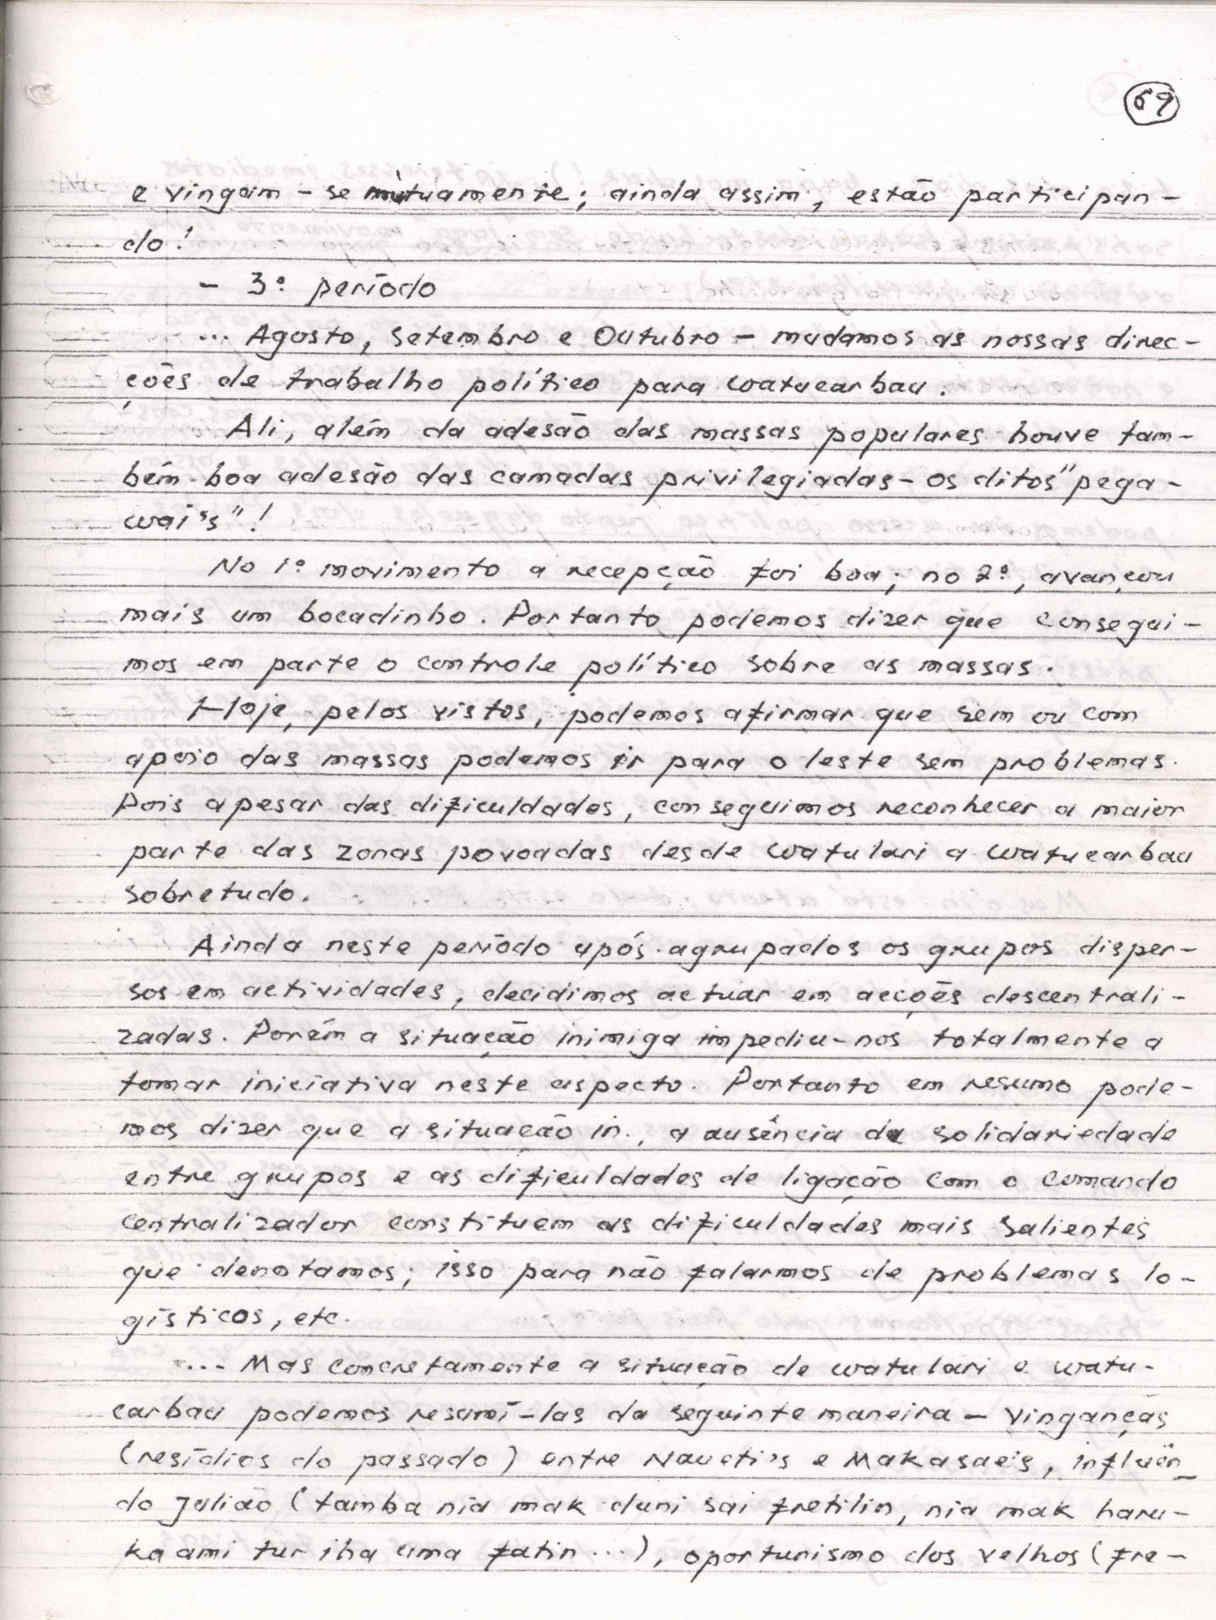 69
e vingam-se mutuamente; ainda assim, estão participan-
do!
- 3º período
... Agosto, Setembro e Outubro - mudamos as nossas direc-
ções de trabalho político para watucarbau.
Ali, além da adesão das massas populares houve tam-
bém boa adesão das camadas privilegiadas - os ditos "pega-
wai's"!
No 1º movimento a recepção foi boa; no 2º, avançou
mais um bocadinho. Portanto podemos dizer que consegui-
mos em parte o controle político sobre as massas.
Hoje, pelos vistos, podemos afirmar que sem ou com
apoio das massas podemos ir para o leste sem problemas.
Pois apesar das dificuldades, conseguimos reconhecer a maior
parte das zonas povoadas desde watulari a watucarbau
sobretudo.
Ainda neste período após agrupados os grupos disper-
sos em actividades, decidimos actuar em acções descentrali-
zadas. Porém a situação inimiga impediu-nos totalmente a
tomar iniciativa neste aspecto. Portanto em resumo pode-
mos dizer que a situação in., a ausência de solidariedade
entre grupos e as dificuldades de ligação com o comando
centralizador constituem as dificuldades mais salientes
que denotamos; isso para não falarmos de problemas lo-
gísticos, etc.
... Mas concretamente a situação de watulari e watu-
carbau podemos resumí-las da seguinte maneira - vinganças
(resídios do passado) entre Naueti's e Makasae's, influên
do Julião (tamba nia mak duni sai fretilin, nia mak haru-
ka ami tur iha uma fatin...), oportunismo dos velhos (fre-